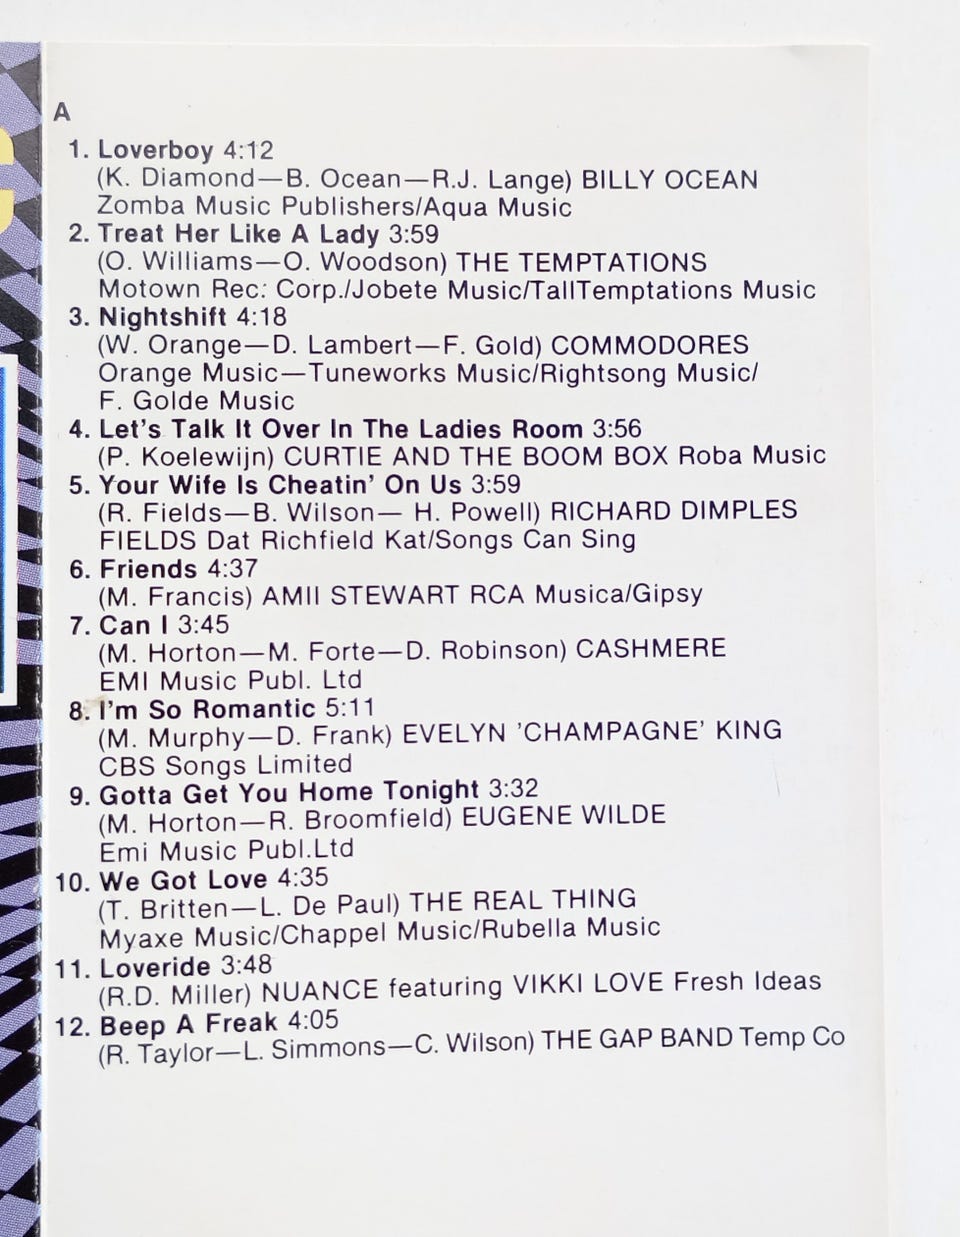 A
1. Loverboy 4:12
(K. Diamond—B. Ocean—R.J. Lange) BILLY OCEAN
Zomba Music Publishers/Aqua Music
2. Treat Her Like A Lady 3:59
(O. Williams—O. Woodson) THE TEMPTATIONS
Motown Rec: Corp./Jobete Music/TallTemptations Music
3. Nightshift 4:18
(W. Orange—D. Lambert—F. Gold) COMMODORES
Orange Music—Tuneworks Music/Rightsong Music/
F. Golde Music
4. Let's Talk It Over In The Ladies Room 3:56
(P. Koelewijn) CURTIE AND THE BOOM BOX Roba Music
5. Your Wife Is Cheatin' On Us 3:59
(R. Fields—B. Wilson— H. Powell) RICHARD DIMPLES
FIELDS Dat Richfield Kat/Songs Can Sing
6. Friends 4:37
(M. Francis) AMII STEWART RCA Musica/Gipsy
7. Can I 3:45
(M. Horton—M. Forte—D. Robinson) CASHMERE
EMI Music Publ. Ltd
8. I'm So Romantic 5:11
(M. Murphy—D. Frank) EVELYN 'CHAMPAGNE' KING
CBS Songs Limited
9. Gotta Get You Home Tonight 3:32
(M. Horton—R. Broomfield) EUGENE WILDE
Emi Music Publ.Ltd
10. We Got Love 4:35
(T. Britten—L. De Paul) THE REAL THING
Myaxe Music/Chappel Music/Rubella Music
11. Loveride 3:48
(R.D. Miller) NUANCE featuring VIKKI LOVE Fresh Ideas
12. Beep A Freak 4:05
(R. Taylor—L. Simmons—C. Wilson) THE GAP BAND Temp Co